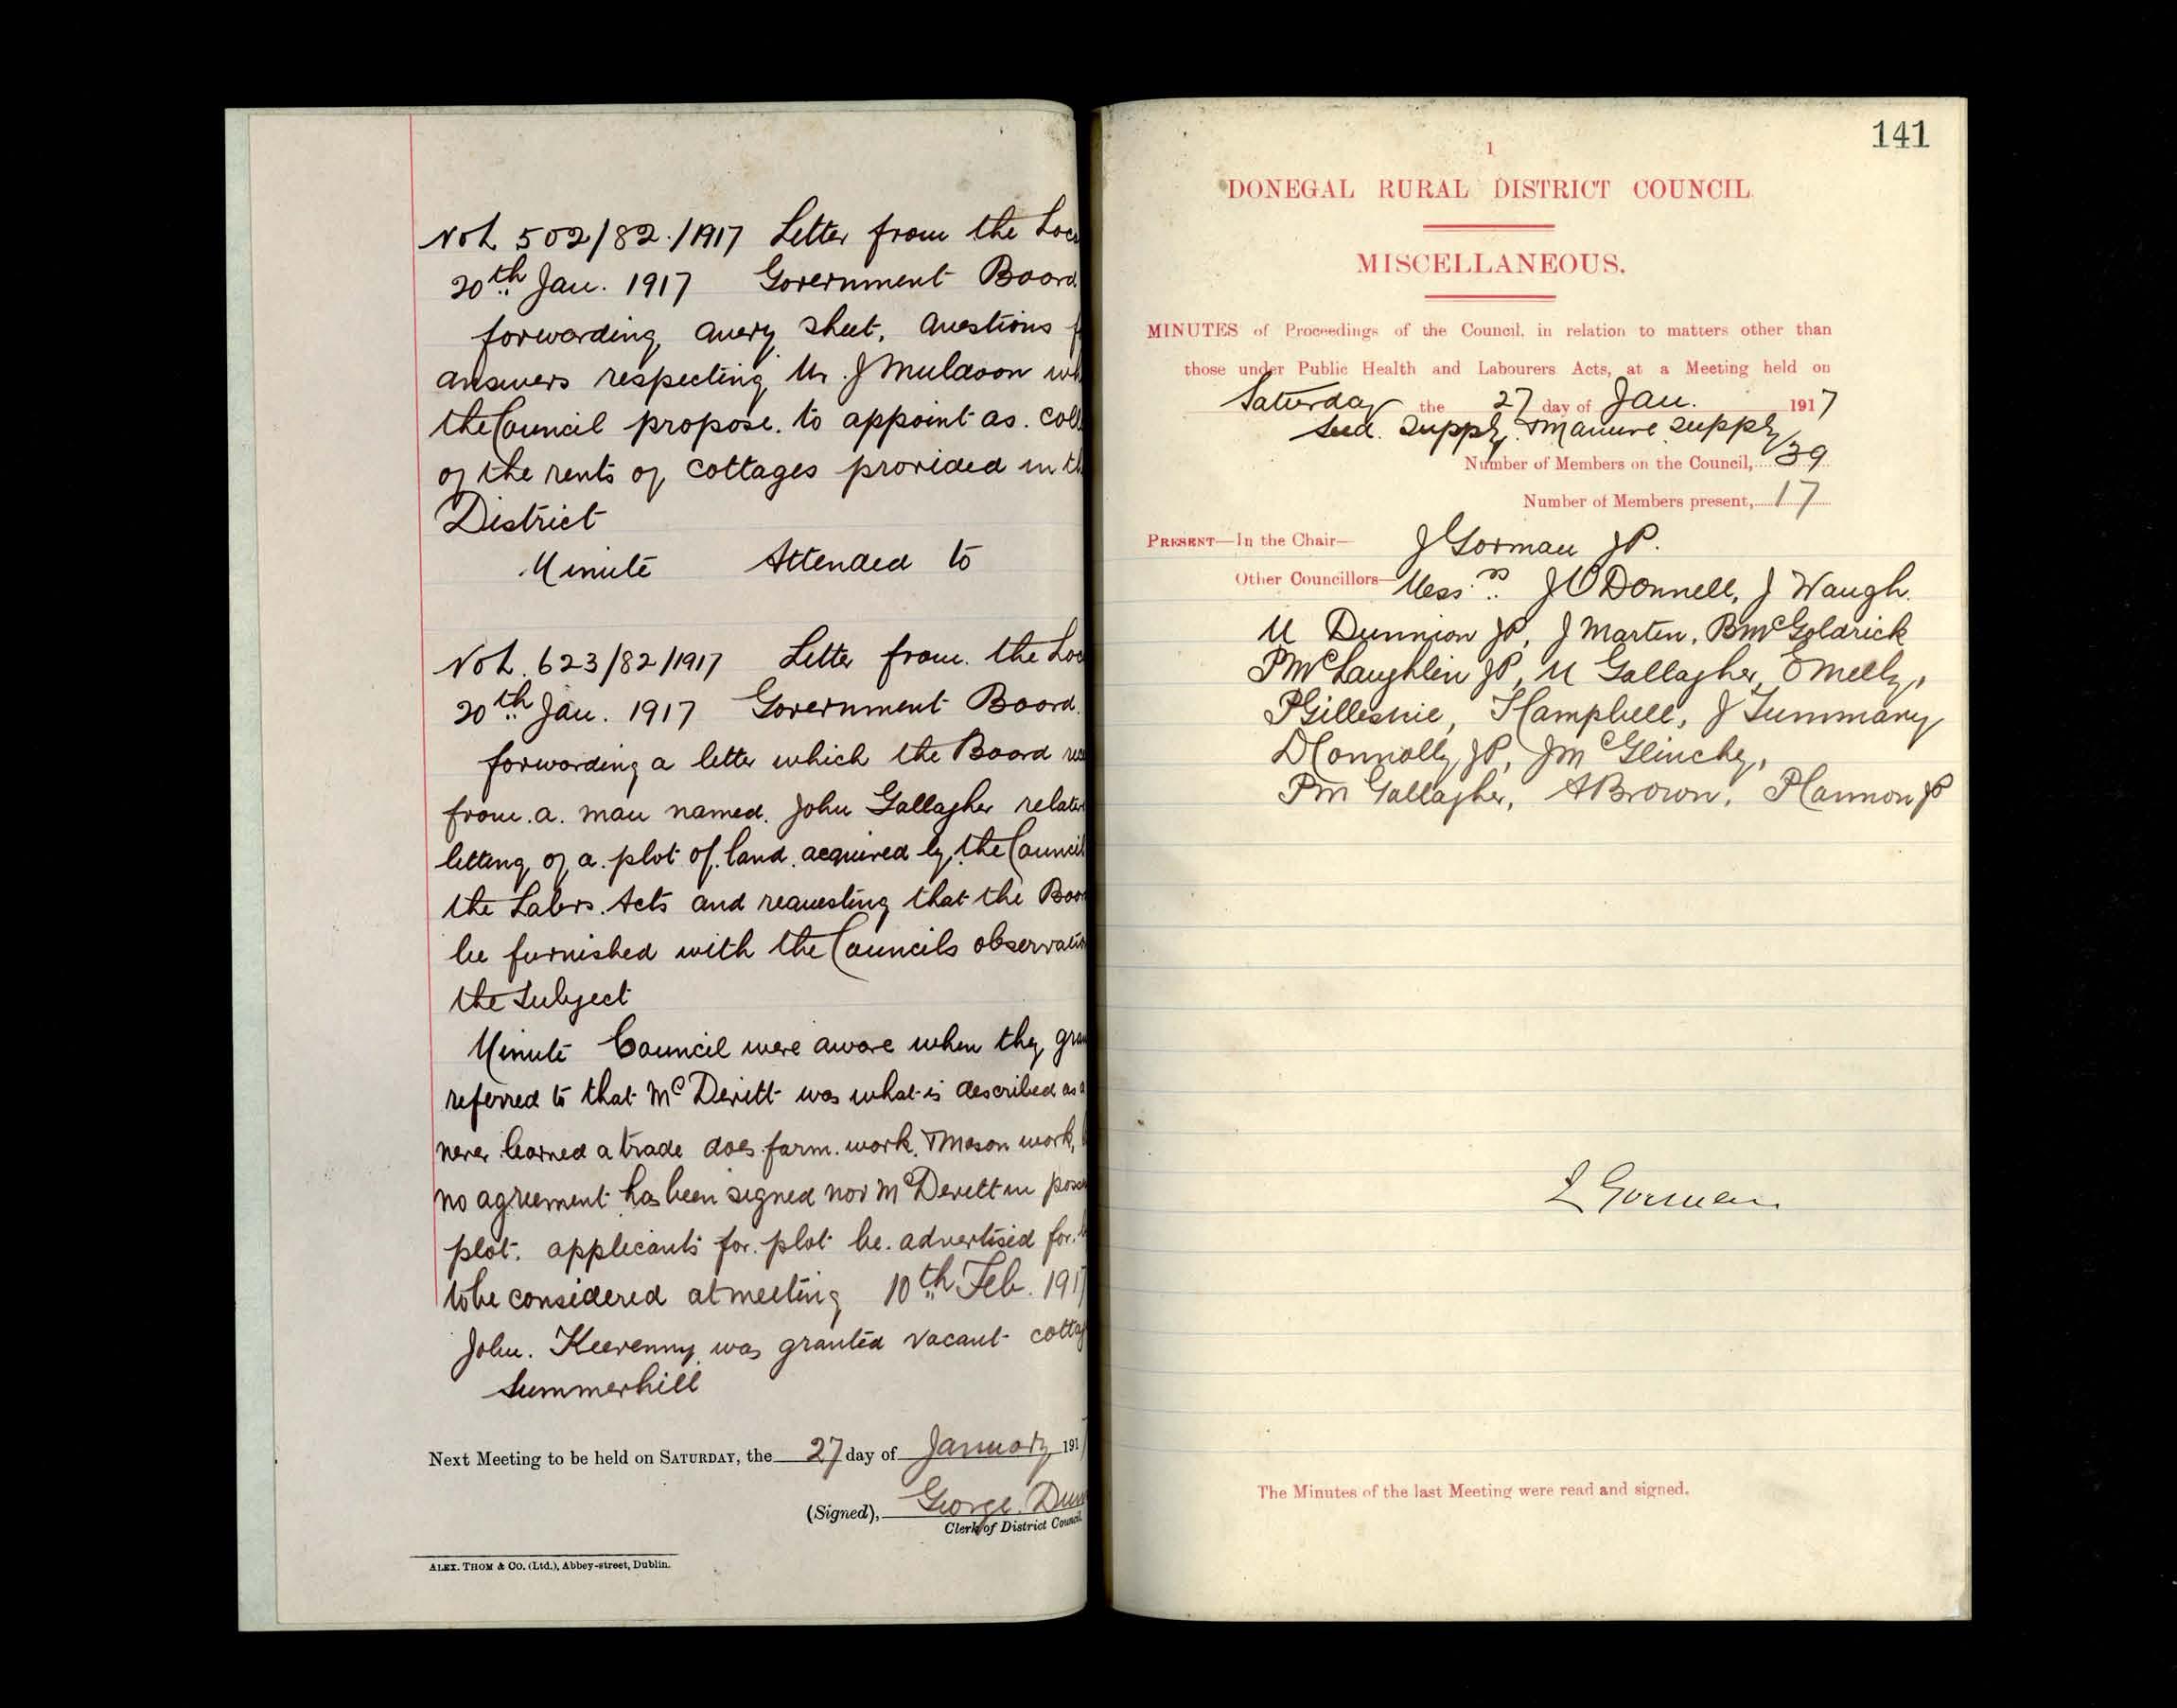 No L 502/82./1917 Letter from the Loc
20th Jan. 1917 Government Board
forwarding query sheet, questions f
answers respecting Mr. J Muldoon wh
the Council propose to appoint as coll
of the rents of cottages provided in th
District
Minute Attended to
No L. 623/82/1917 Letter from the Loc
20th Jan. 1917 Government Board.
forwarding a letter which the Board rec
from a man named John Gallagher relativ
letting of a plot of land acquired by the Council
the Labrs. Acts and requesting that the Boar
be furnished with the Councils observatio
the Subject
Minute Council were aware when they gran
referred to that McDevitt was what is described as a
never learned a trade does farm work & mason work,
no agreement has been signed nor McDevitt in poss
plot. applicants for plot be advertised for.
to be considered at meeting 10th Feb. 1917
John. Keevenny was granted vacant cottag
Summerhill
Next Meeting to be held on SATURDAY, the 27 day of January 191
(Signed), George Dun
Clerk of District Council.
ALEX. THOM & CO. (Ltd.), Abbey-street, Dublin.
141
1
DONEGAL RURAL DISTRICT COUNCIL
MISCELLANEOUS.
MINUTES of Proceedings of the Council, in relation to matters other than
those under Public Health and Labourers Acts, at a Meeting held on
Saturday the 27 day of Jan. 1917
Seed Supply & Manure Supply
Number of Members on the Council, 39
Number of Members present, 17
PRESENT—In the Chair— J Gorman JP.
Other Councillors— Messrs. J O Donnell, J Waugh.
M Dunnion JP, J Marten, B McGoldrick
P McLaughlin JP, M Gallagher, E Melly,
P Gillespie, J Campbell, J Summary
D Connolly JP, J McGlinchy,
P M Gallagher, A Brown, P Cannon JP
J Gorman
The Minutes of the last Meeting were read and signed.